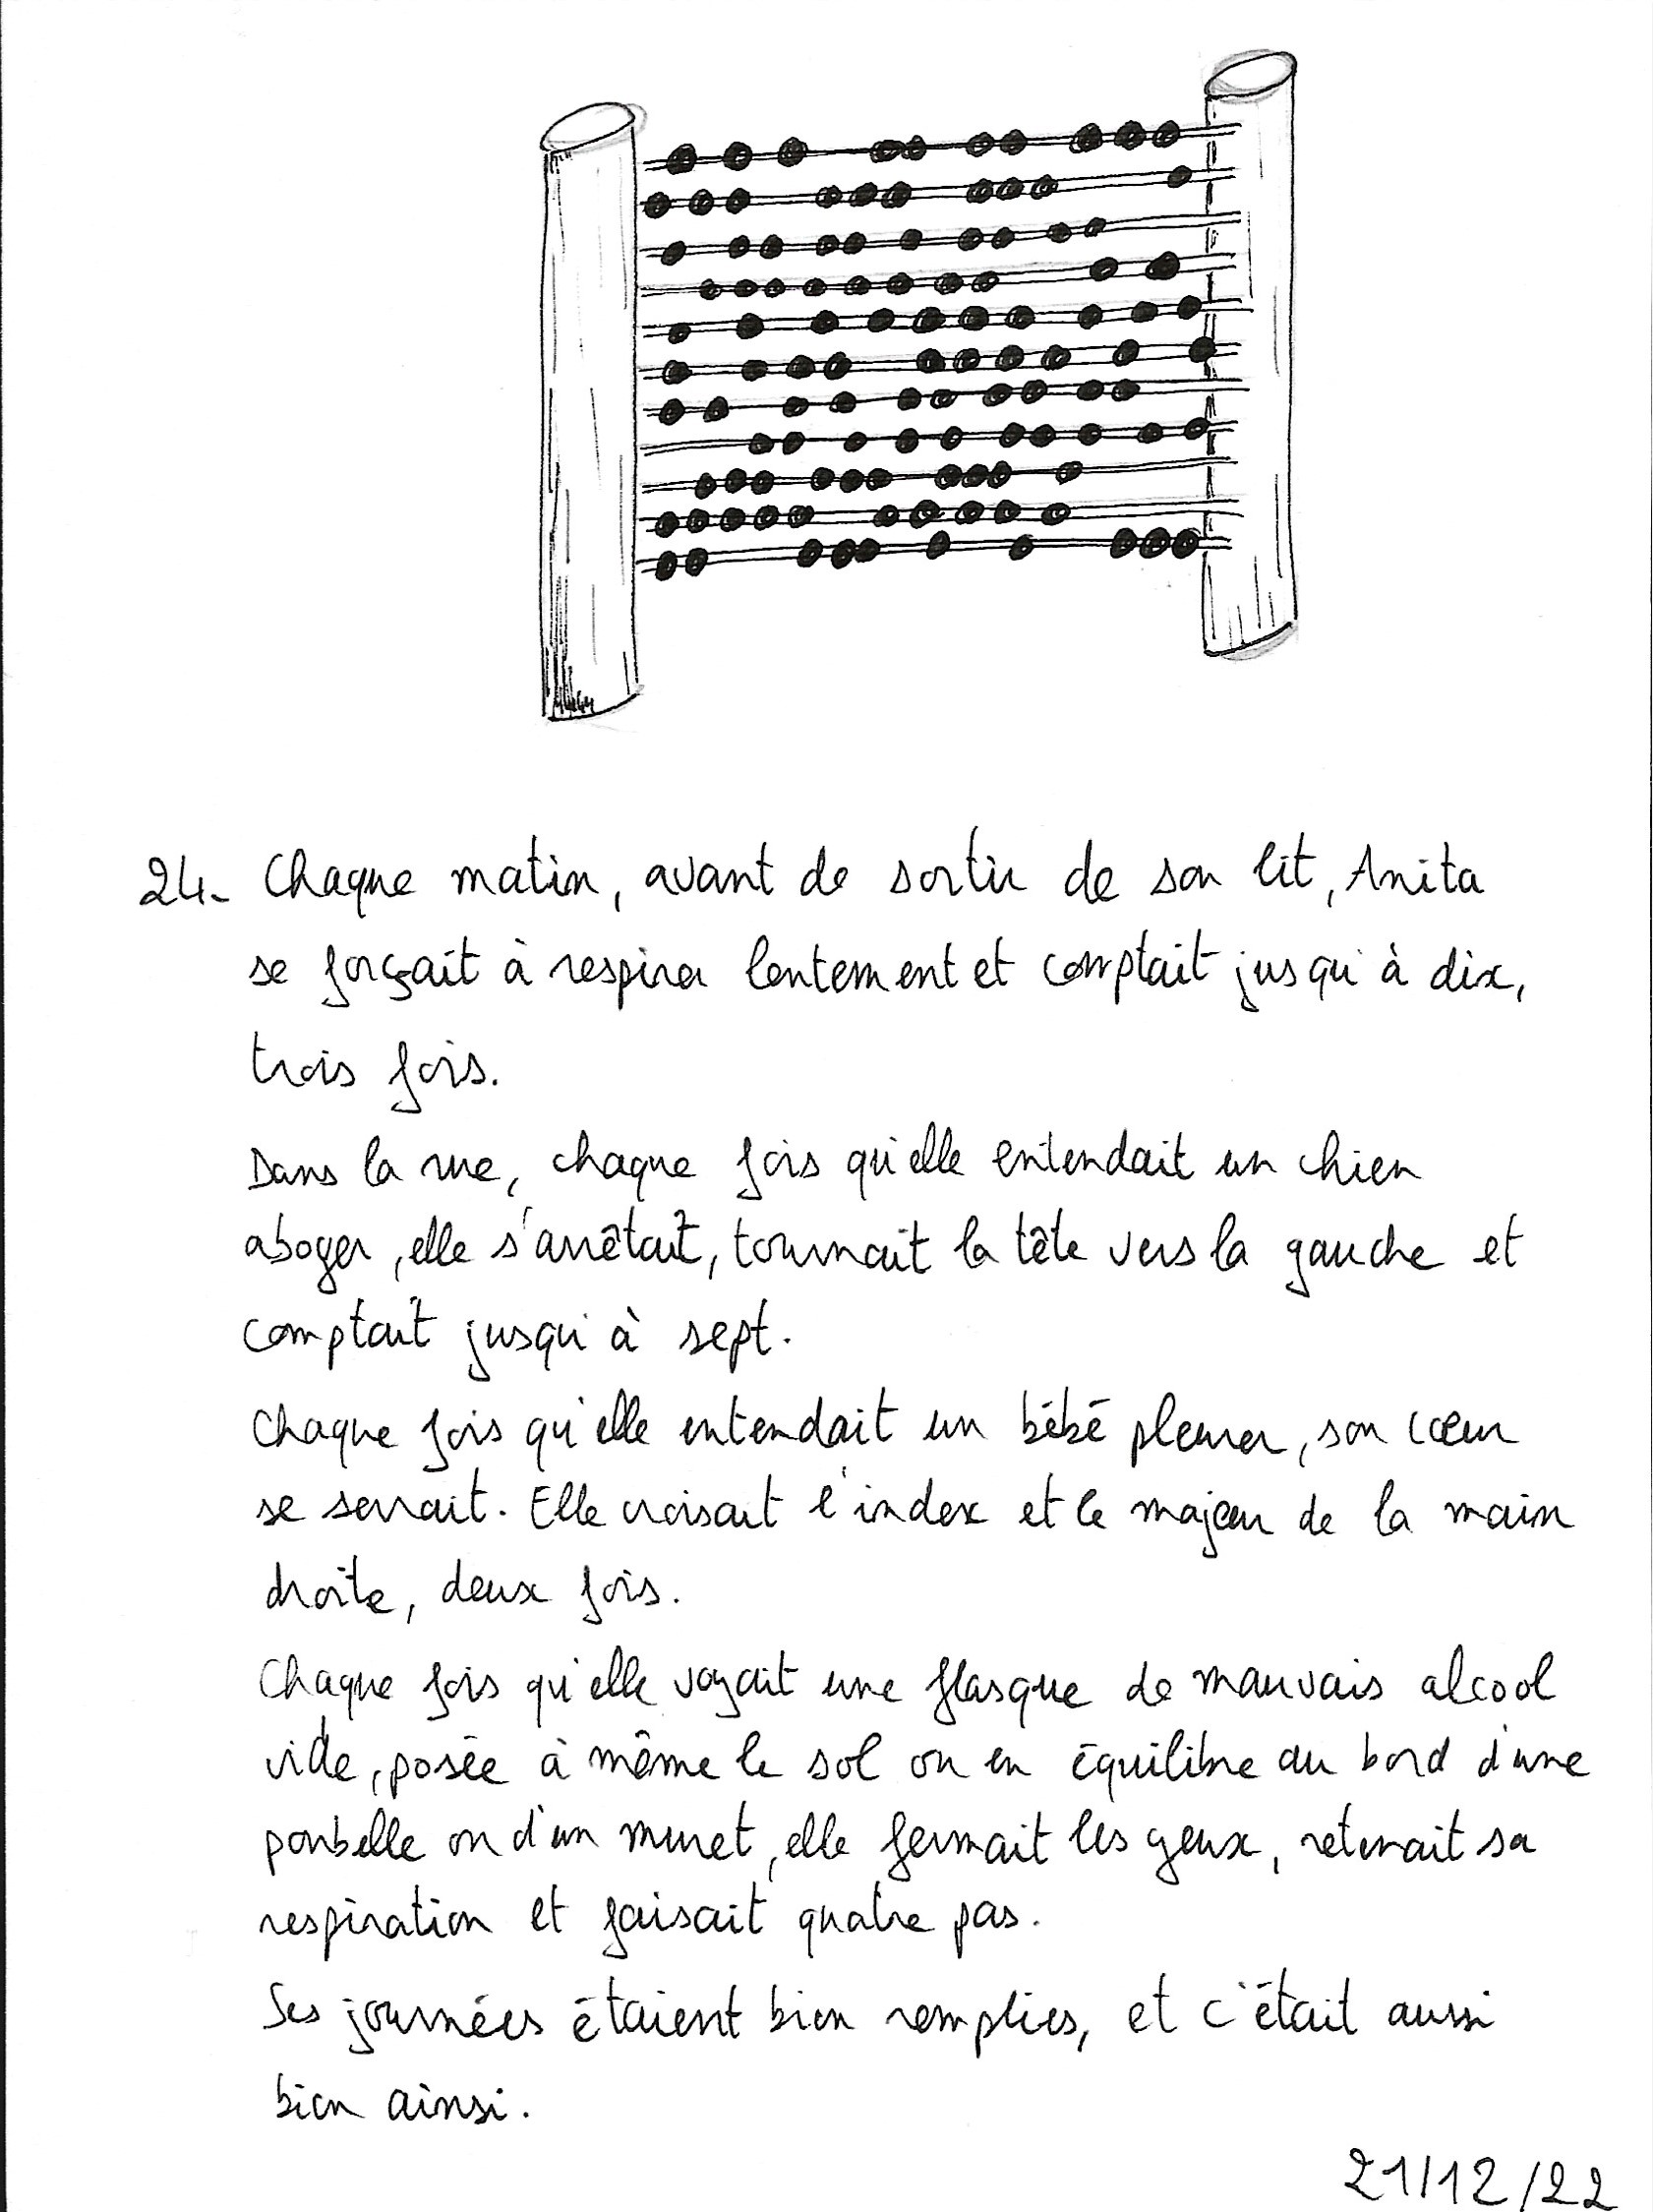 24- Chaque matin, avant de sortir de son lit, Anita
se forçait à respirer lentement et comptait jusqu'à dix,
trois fois.
Dans la rue, chaque fois qu'elle entendait un chien
aboyer, elle s'arrêtait, tournait la tête vers la gauche et
comptait jusqu'à sept.
Chaque fois qu'elle entendait un bébé pleurer, son cœur
se serrait. Elle croisait l'index et le majeur de la main
droite, deux fois.
Chaque fois qu'elle voyait une flasque de mauvais alcool
vide, posée à même le sol ou en équilibre au bord d'une
poubelle ou d'un muret, elle fermait les yeux, retenait sa
respiration et faisait quatre pas.
Ses journées étaient bien remplies, et c'était aussi
bien ainsi.
21/12/22